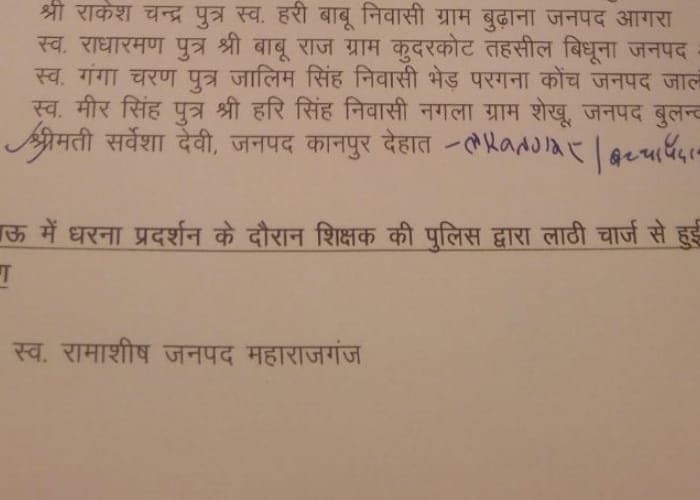 श्री राकेश चन्द्र पुत्र स्व. हरी बाबू निवासी ग्राम बुढ़ाना जनपद आगरा
स्व. राधारमण पुत्र श्री बाबू राज ग्राम कुदरकोट तहसील बिधूना जनपद
स्व. गंगा चरण पुत्र जालिम सिंह निवासी भेड़ परगना कोंच जनपद
स्व. मीर सिंह पुत्र श्री हरि सिंह निवासी नगला ग्राम शेखू, जनपद
श्रीमती सर्वेशा देवी, जनपद कानपुर देहात -
में धरना प्रदर्शन के दौरान शिक्षक की पुलिस द्वारा लाठी चार्ज से हुई
स्व. रामाशीष जनपद महाराजगंज